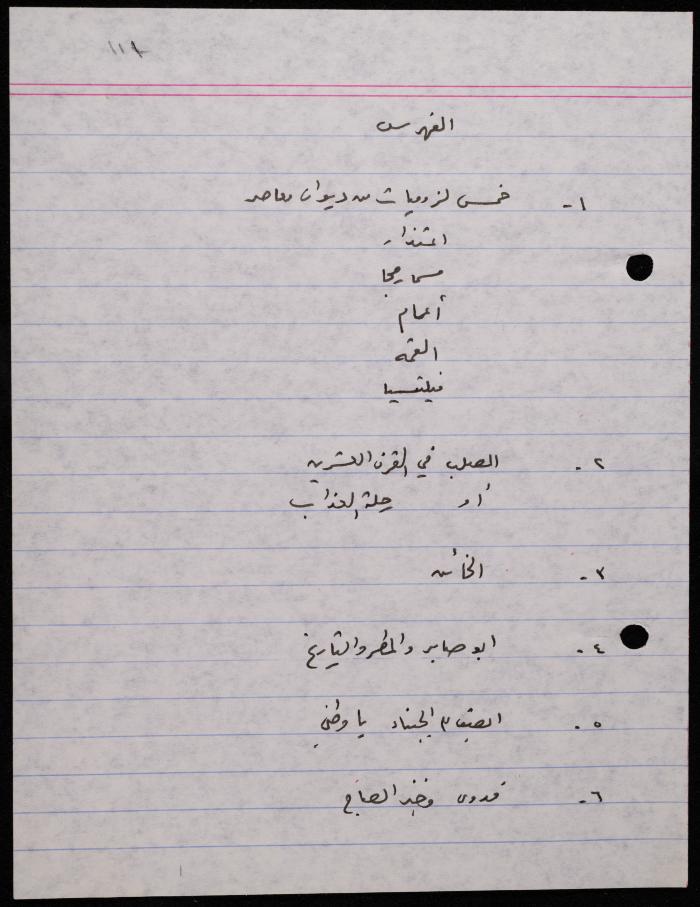 ١١٨
الفهرس
١- خمس لزوميات من ديوان معاصر
اعتذار
مسامحا
أعمام
القمة
فيلتسيا
٢- الصلب في القرن العشرين
أو رحلة العذاب
٣- الخائن
٤- ابو صابر والمطر والتاريخ
٥- الجبناء يا وطني
٦- فدوى وخبز الصباح